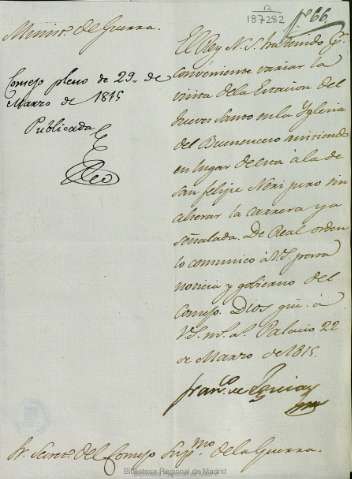 12
187282
nº 66
Minist. de Guerra.
El Rey N. S. ha tenido pr.
conveniente variar la
visita de la Estacion del
Jueves Santo en la Yglesia
del Buensuceso
en lugar de esta á la de
San Felipe Neri pero sin
alterar la carrera ya
señalada. De Real orden
lo comunico á V.S. para
noticia y gobierno del
Consejo. Dios gue. á
V.S. ms. as. Palacio 22
de Marzo de 1815.
Consejo pleno de 29. de
Marzo de 1815
Publicada
Sr. Secreo. del Consejo Supmo. de la Guerra.
Biblioteca Regional de Madrid